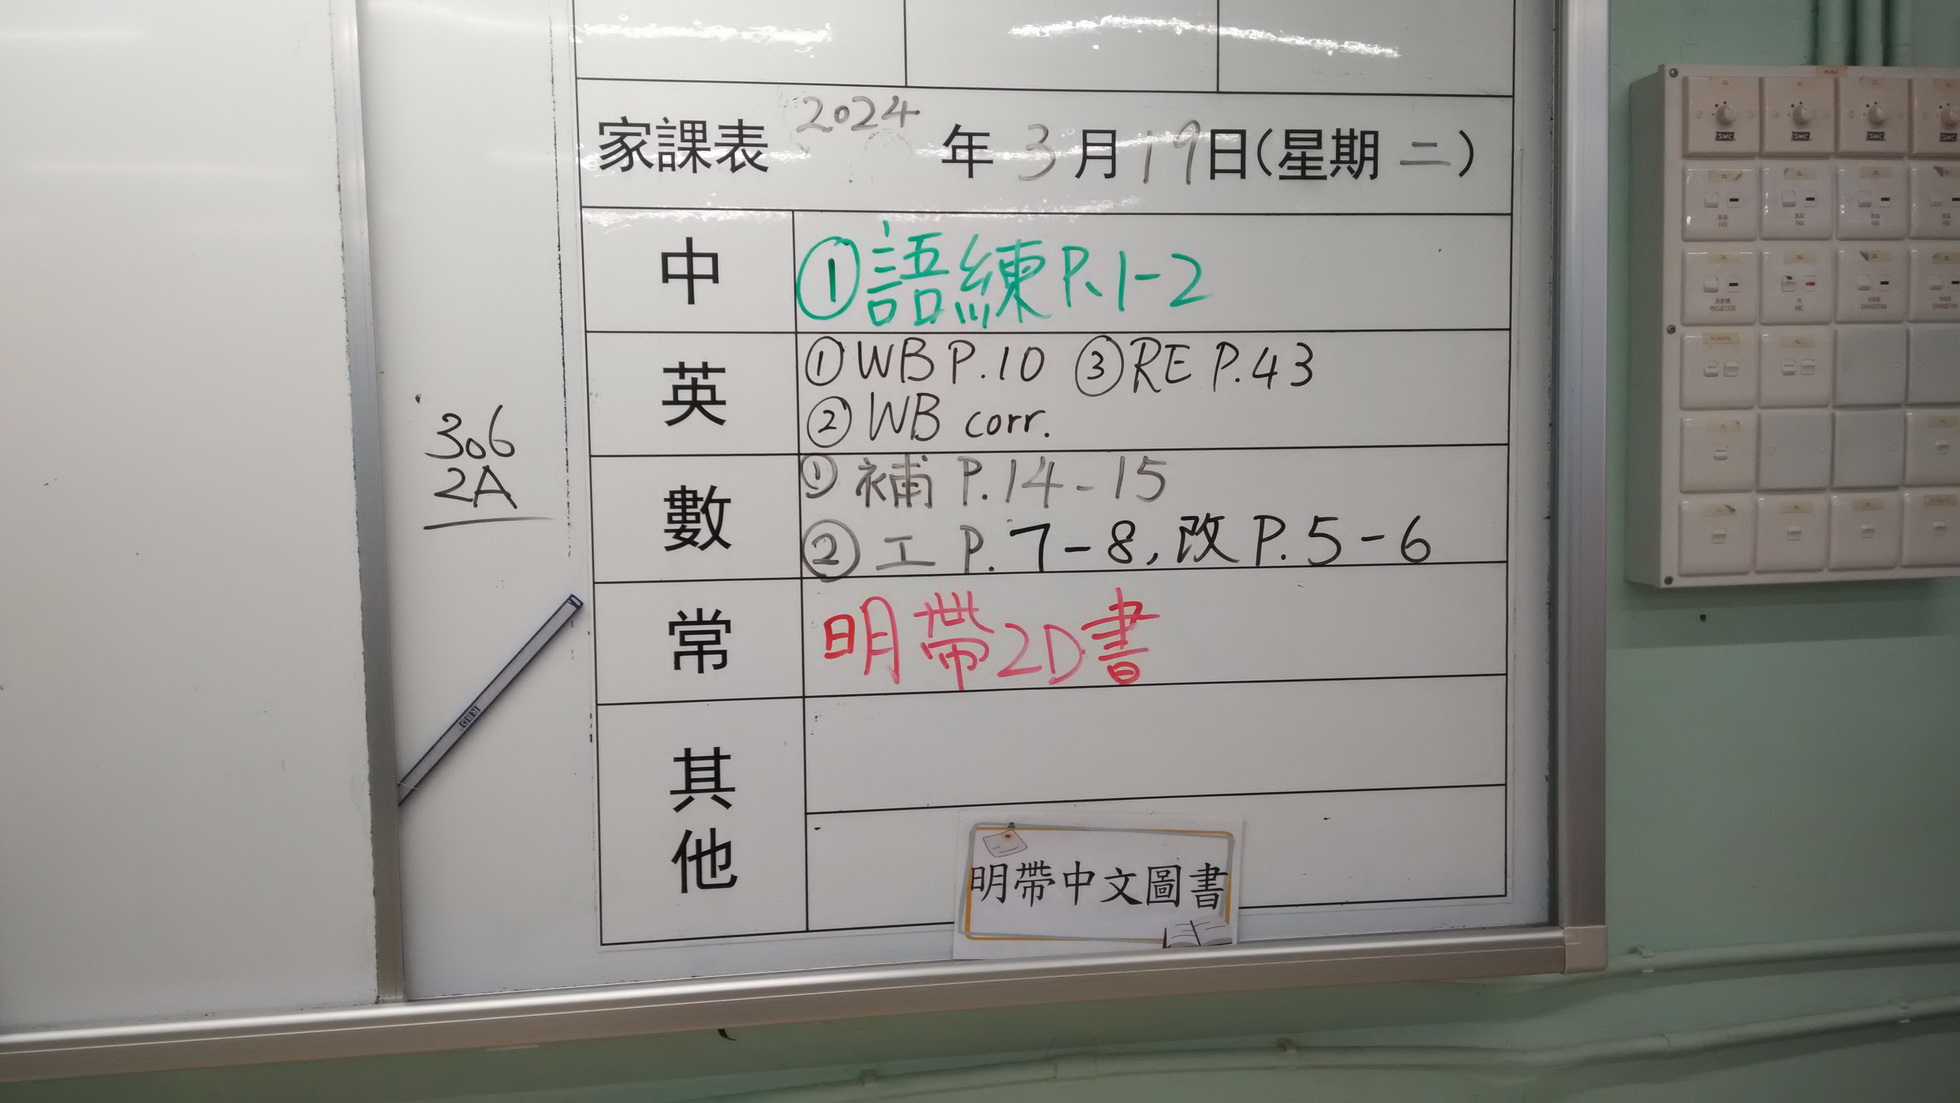 家課表 2024 年 3 月 19 日(星期 二)
中
①語練P.1-2
英
①WB P.10 ③RE P.43
② WB corr.
306
2A
數
① 補 P.14-15
② 工 P.7-8,改 P.5-6
常
明帶2D書
其他
明帶中文圖書